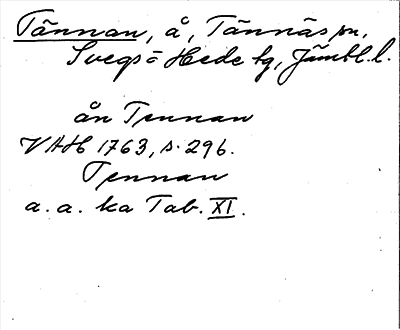 Tännan, å, Tännäs sn,
Svegs o Hede tg, Jämtl. l.
ån Tennan
VAH 1763, s. 296.
Tennan
a. a. ka Tab. XI.